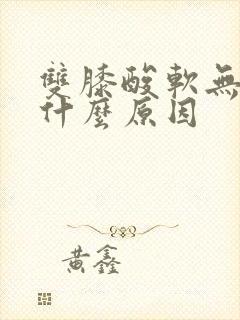 雙膝酸軟無
什麼原因
黃鑫